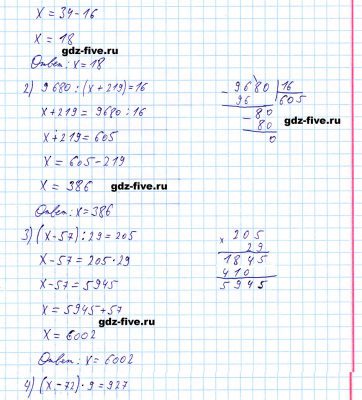 x = 34-16
x = 18
gdz-five.ru
Ответ: x = 18
2) 9680 : (x + 219) = 16
x + 219 = 9680 : 16
x + 219 = 605
x = 605 - 219
x = 386
gdz-five.ru
Ответ: x = 386
- 9680 | 16
96 605
- 80
80
0
gdz-five.ru
3) (x - 57) : 29 = 205
x - 57 = 205 · 29
x - 57 = 5945
x = 5945 + 57
gdz-five.ru
x = 6002
Ответ: x = 6002
x 205
29
1845
410
5945
4) (x - 72) · 9 = 927